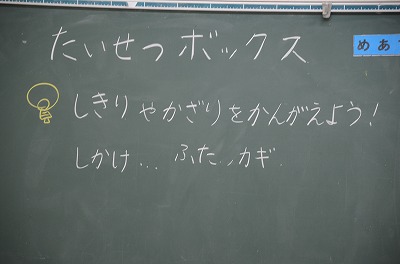 たいせつボックス
めあ
しきりやかざりをかんがえよう!
しかけ... ふた、カギ